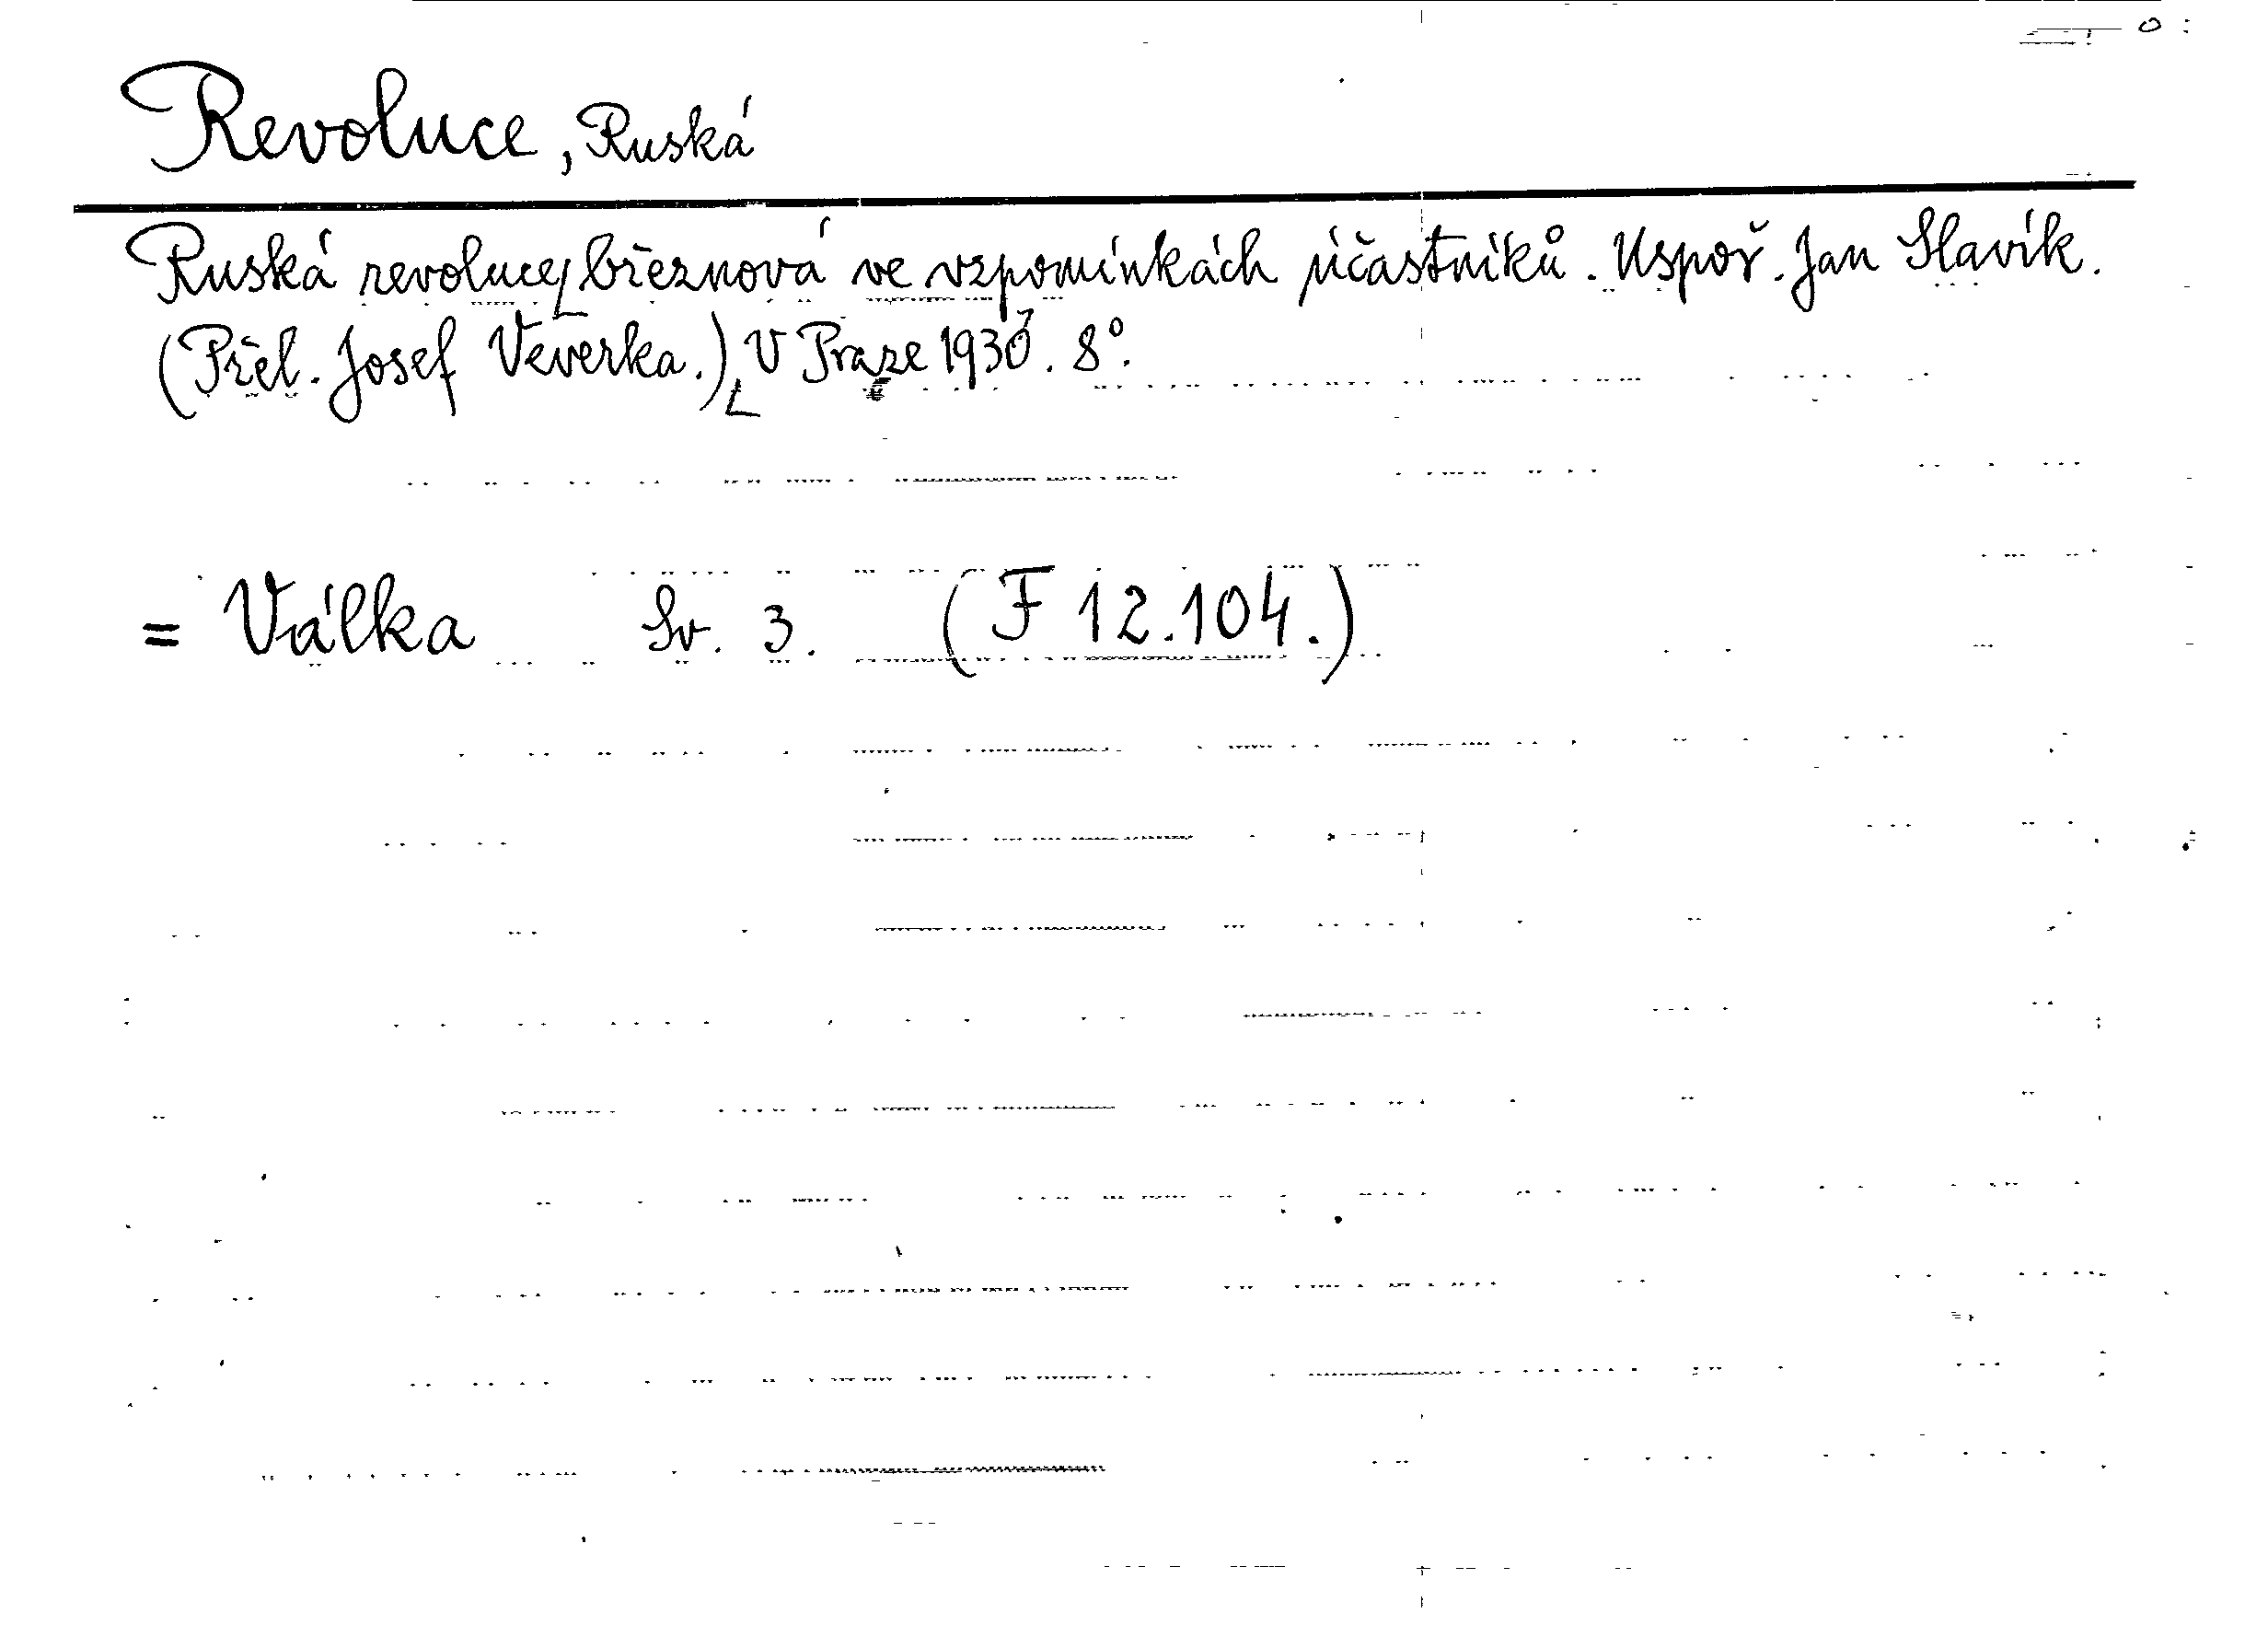 Revoluce, Ruská
Ruská revoluce březnová ve vzpomínkách účastníků. Uspoř. Jan Slavík.
(Přel. Josef Veverka.) V Praze 1930. 8°.
= Válka Sv. 3. (F 12.104.)